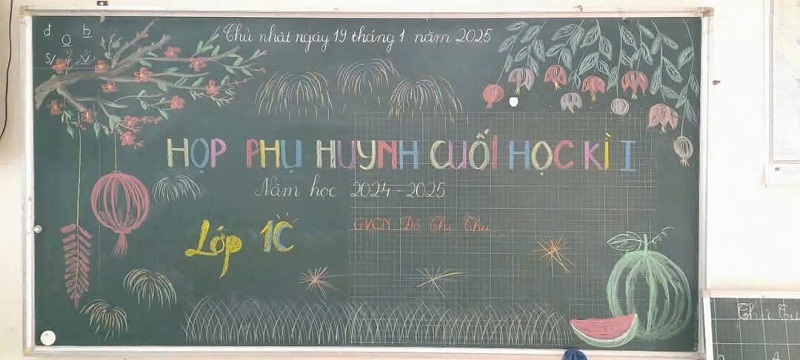 Chủ nhật ngày 19 tháng 1 năm 2025
HỌP PHỤ HUYNH CUỐI HỌC KÌ I
Năm học 2024-2025
Lớp 1C
GVCN Đỗ Thị Thu